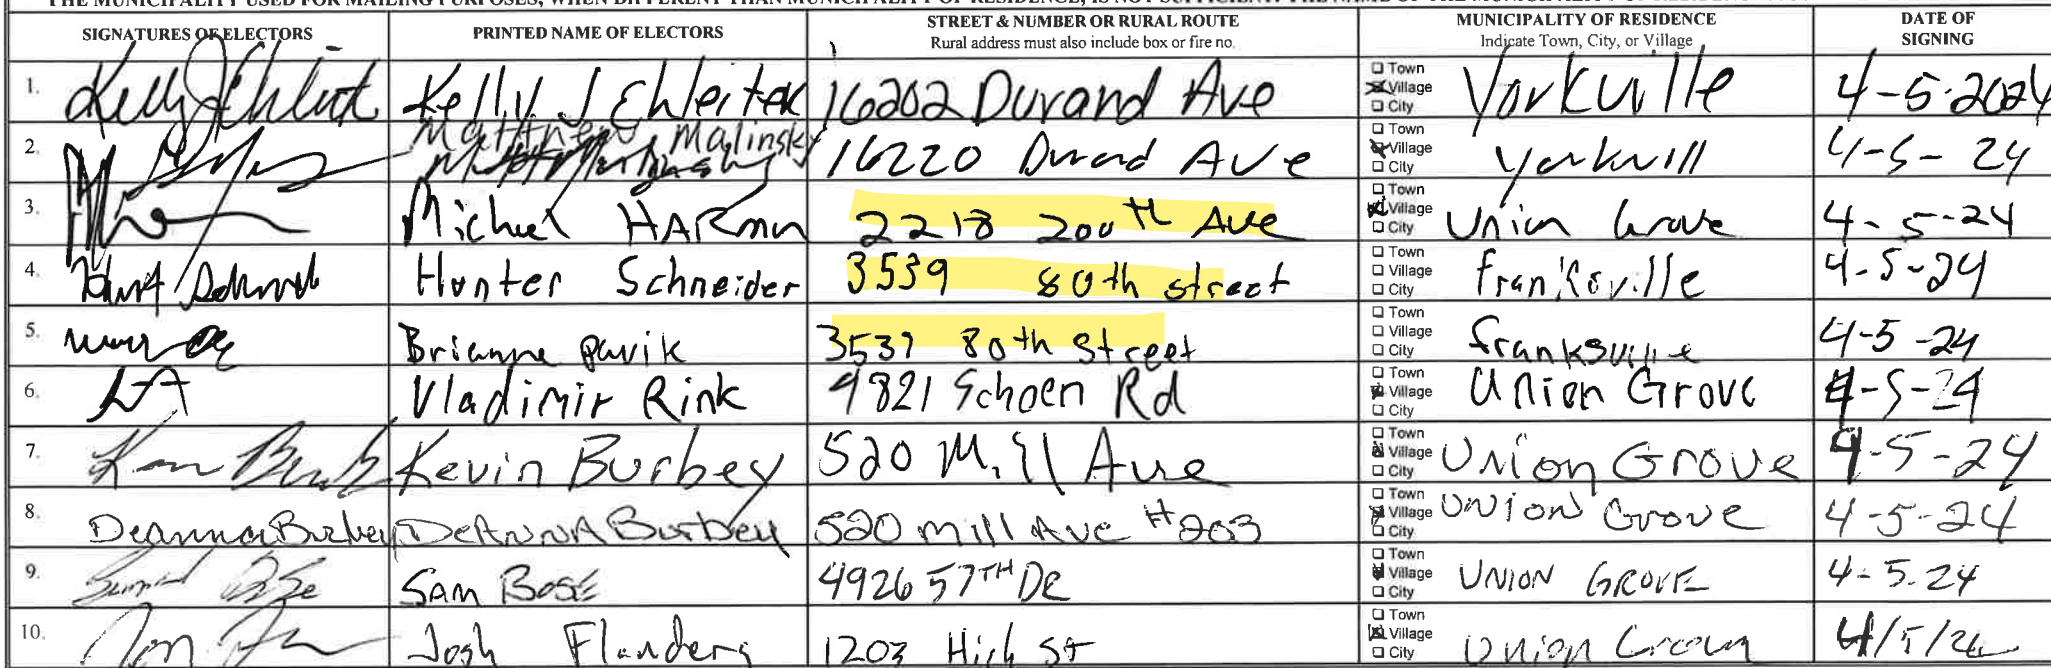 SIGNATURES OF ELECTORS PRINTED NAME OF ELECTORS STREET & NUMBER OR RURAL ROUTE MUNICIPALITY OF RESIDENCE DATE OF
Rural address must also include box or fire no. Indicate Town, City, or Village SIGNING
1. Kelly J Ehleiter 16202 Durand Ave Town Village City Yorkville 4-5-2024
2. Matthew Malinsky 16220 Durand Ave Town Village City Yorkvill 4-5-24
3. Michael HARMON 2218 200th Ave Town Village City Union Grove 4-5-24
4. Hunter Schneider 3539 80th street Town Village City franksville 4-5-24
5. Brianne pavik 3539 80th Street Town Village City franksville 4-5-24
6. Vladimir Rink 4821 Schoen Rd Town Village City Union Grove 4-5-24
7. Kevin Burbey 520 Mill Ave Town Village City Union Grove 4-5-24
8. Deanna Burbey DeAnna Burbey 520 Mill Ave #203 Town Village City Union Grove 4-5-24
9. SAM BOSE 4926 57TH DR Town Village City UNION GROVE 4-5-24
10. Josh Flanders 1203 High St Town Village City Union 4/5/24